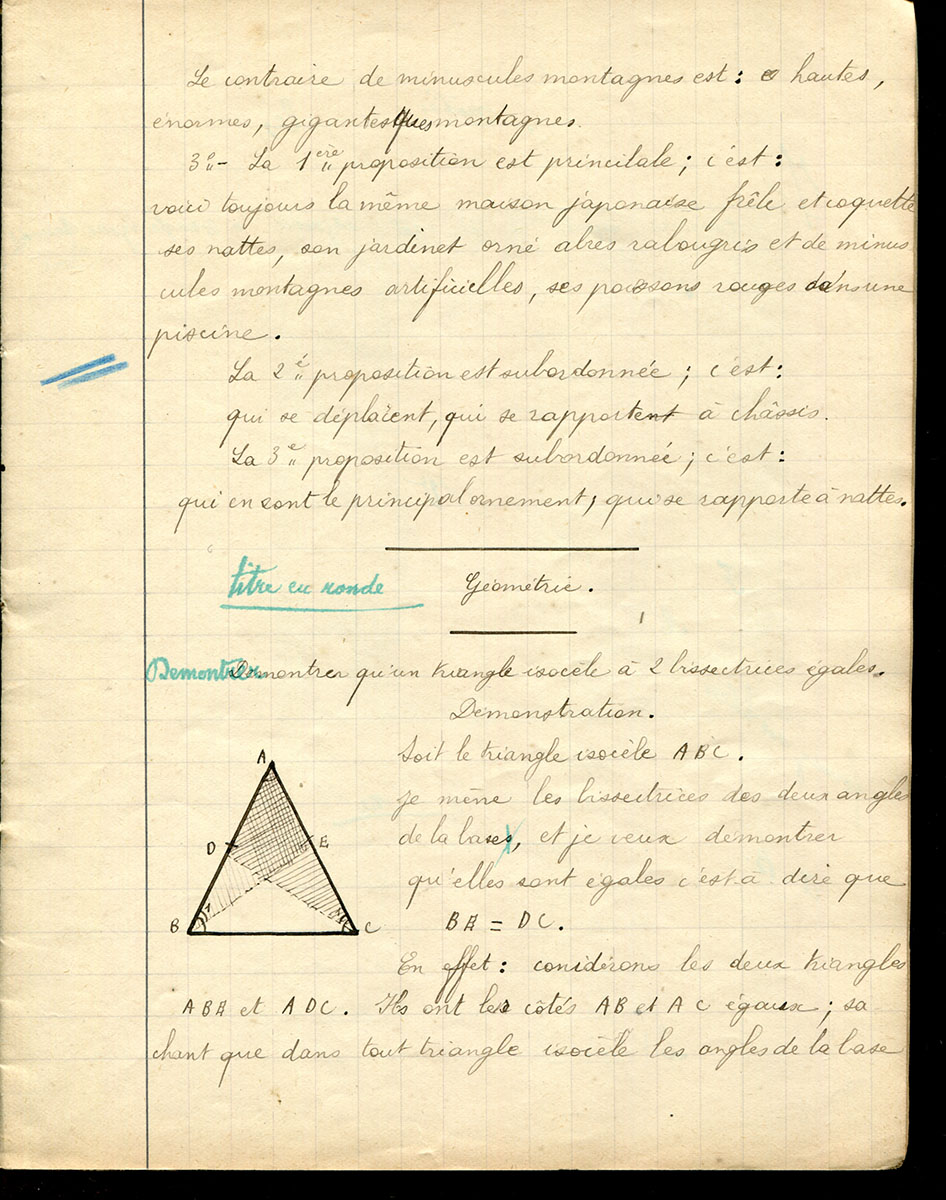 Le contraire de minuscules montagnes est : hautes,
énormes, gigantesques montagnes.
3° - La 1ère proposition est princilale ; c'est :
voici toujours la même maison japonaise frêle et coquette
ses nattes, son jardinet orné abres rabougris et de minus
cules montagnes artificielles, ses poissons rouges dans une
piscine.
La 2e proposition est subordonnée ; c'est :
qui se déplaient, qui se rapportent à châssis.
La 3e proposition est subordonnée ; c'est :
qui en sont le principal ornement, qui se rapporte à nattes.
titre en ronde
Géométrie.
Demontrer
Démontrer qu'un triangle isocèle à 2 bissectrices égales.
Démonstration.
Soit le triangle isocèle ABC.
Je mène les bissectrices des deux angles
de la bases, et je veux démontrer
qu'elles sont égales c'est à dire que
BE = DC.
En effet : conidérons les deux triangles
ABE et ADC. Ils ont les côtés AB et AC égaux ; sa
chant que dans tout triangle isocèle les angles de la base
A
D
E
B
C